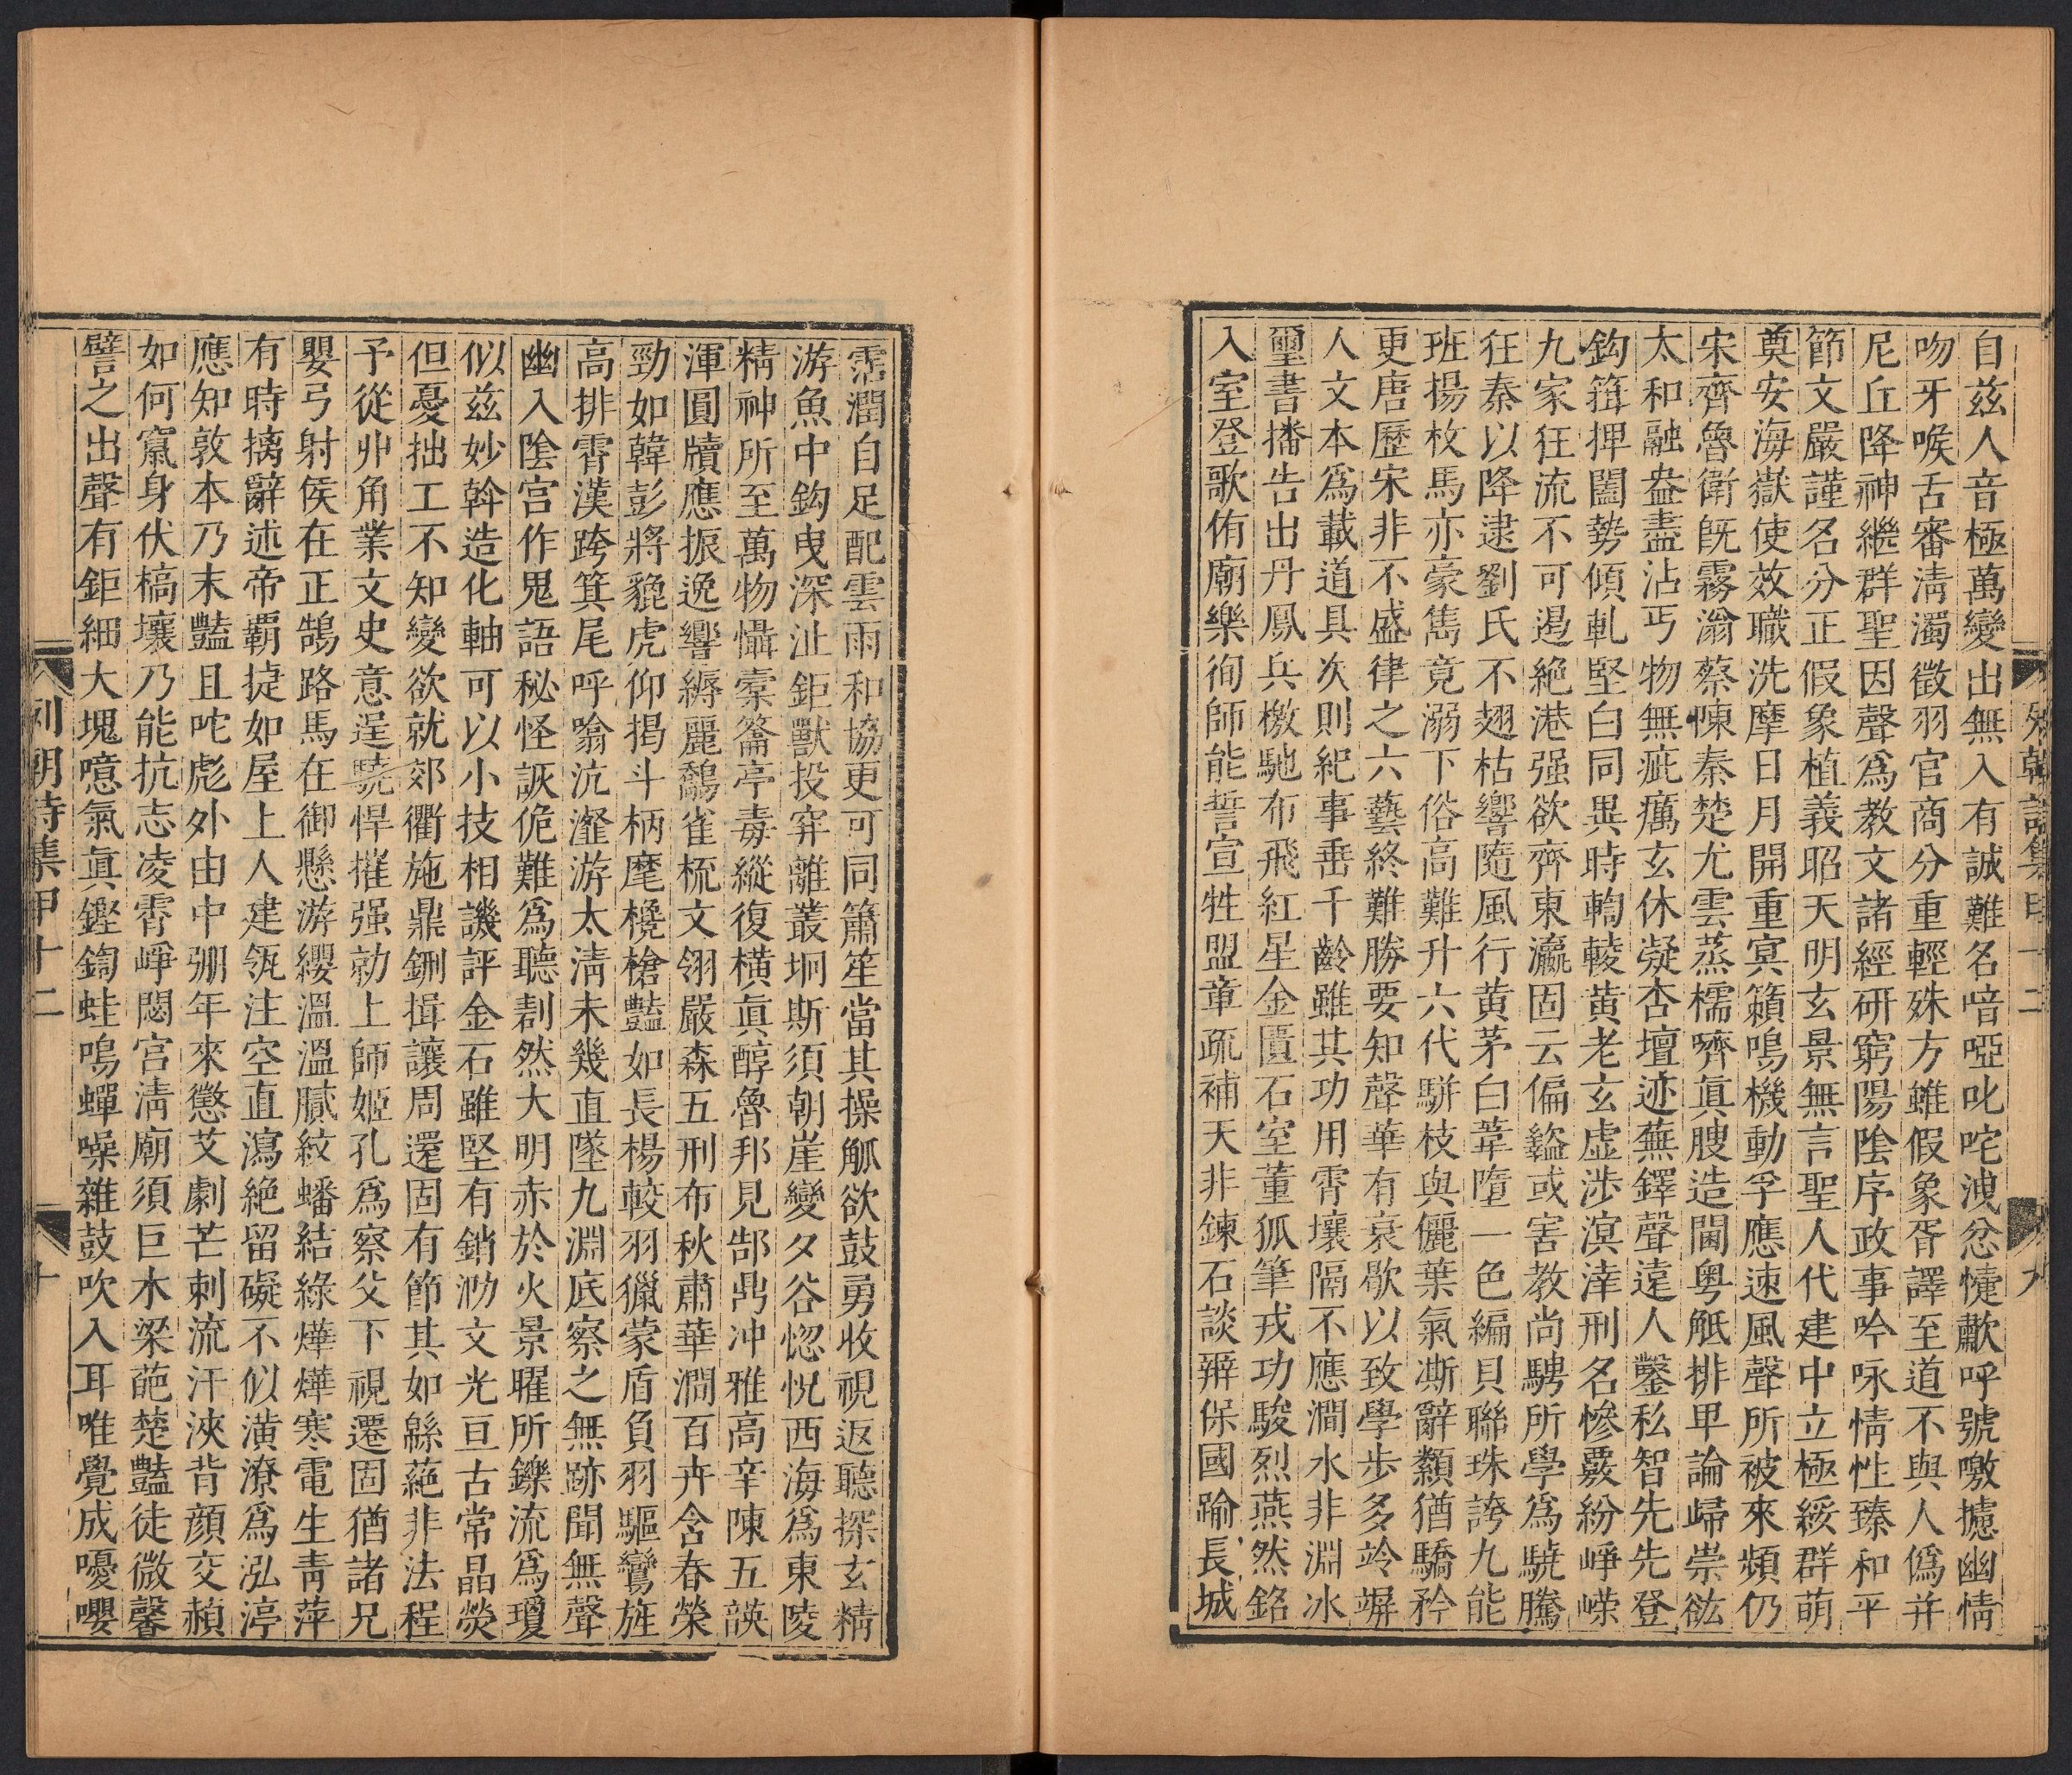 列朝詩集甲十二
九
自茲人音極萬變出無入有誠難名喑啞叱咤洩忿懥歗呼號噭攄幽情
吻牙喉舌審清濁徵羽宮商分重輕姝方雖假象胥譯至道不與人僞并
尼丘降神繼群聖因聲爲教文諸經研窮陽陰序政事吟咏情性臻和平
節文嚴謹名分正假象植義昭天明玄景無言聖人代建中立極綏群萌
奠安海嶽使效職洗摩日月開重冥籟鳴機動孚應速風聲所被來頻仍
宋齊魯衛旣霧滃蔡陳秦楚尤雲蒸檽嚌眞腴造閫粤觝排卑論歸崇谹
太和融盎盡沾丐物無疵癘玄休凝杏壇迹蕪鐸聲遠人鑿私智先先登
鈎箝捭闔勢傾軋堅白同異時輷輘黄老玄虛涉溟涬刑名慘覈紛崢嶸
九家狂流不可遏絶港强欲齊東瀛固云偏謚或害教尚騁所學爲驍騰
狂秦以降逮劉氏不翅枯響隨風行黄茅白葦墮一色編貝聯珠誇九能
班揚枚馬亦豪雋竟溺下俗高難升六代駢枝與儷葉氣澌辭纇猶驕矜
更唐歷宋非不盛律之六藝終難勝要知聲華有衰歇以致學步多竛竮
人文本爲載道具次則紀事垂千齡雖其功用霄壤隔不應澗水非淵冰
璽書播告出丹鳳兵檄馳布飛紅星金匱石室董狐筆戎功駿烈燕然銘
入室登歌侑廟樂徇師能誓宣牲盟章疏補天非鍊石談辯保國踰長城
霑潤自足配雲雨和協更可同簫笙當其操觚欲鼓勇收視返聽探玄精
游魚中鈎曳深沚鉅獸投穽離叢坰斯須朝崖變夕谷惚怳西海爲東陵
精神所至萬物懾橐籥亭毒縱復橫眞醇魯邦見郜鼎冲雅高辛陳五韺
渾圓牘應振逸響縟麗鷸雀梳文翎嚴森五刑布秋肅華澗百卉含春榮
勁如韓彭將貔虎仰揭斗柄麾欃槍豔如長楊較羽獵蒙盾負羽驅鸞旌
高排霄漢跨箕尾呼噏沆瀣游太清未幾直墜九淵底察之無跡聞無聲
幽入陰宫作鬼語秘怪詼佹難爲聽剨然大明赤於火景曜所鑠流爲瓊
似茲妙斡造化軸可以小技相譏評金石雖堅有銷泐文光亘古常晶熒
但憂拙工不知變欲就郊衢施鼎鉶揖讓周還固有節其如緜蕝非法程
予從丱角業文史意逞驍悍摧强勍上師姬孔爲察父下視遷固猶諸兄
嬰弓射侯在正鵠路馬在御懸游纓溫溫膩紋蟠結綠燁燁寒電生靑萍
有時摛辭述帝覇捷如屋上人建瓴注空直瀉絶留礙不似潢潦爲泓渟
應知敦本乃末豔且咤彪外由中弸年來懲艾劇芒刺流汗浹背顔交赬
如何竄身伏槁壤乃能抗志凌霄崢閟宫淸廟須巨木梁葩楚豔徒微馨
譬之出聲有鉅細大塊噫氣眞鏗鍧蛙鳴蟬噪雜鼓吹入耳唯覺成嚘嚶
列朝詩集甲十二
十